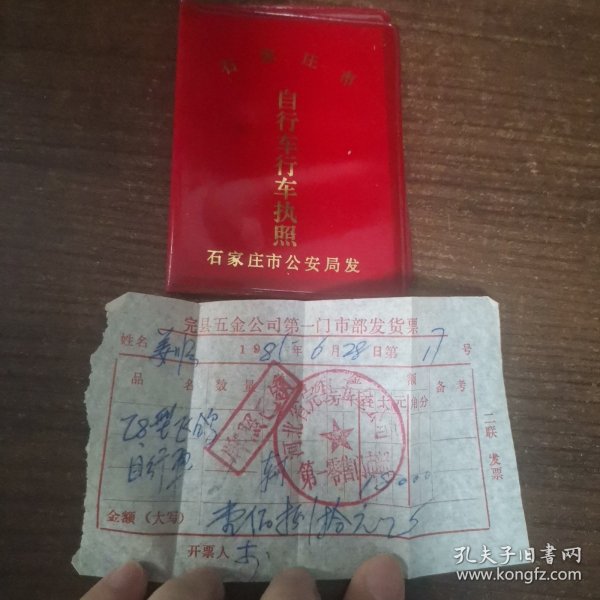 石家庄市
自行车行车执照
石家庄市公安局发
完县五金公司第一门市部发货票
姓名 1981年6月28日第17号
品名 数量 金额 备考
万千百十元角分
28型飞鸽
自行车 辆 18000
金额（大写） 壹佰捌拾元
开票人
二联 发票
第一零售门市部
孔夫子旧书网
www.kongfz.com